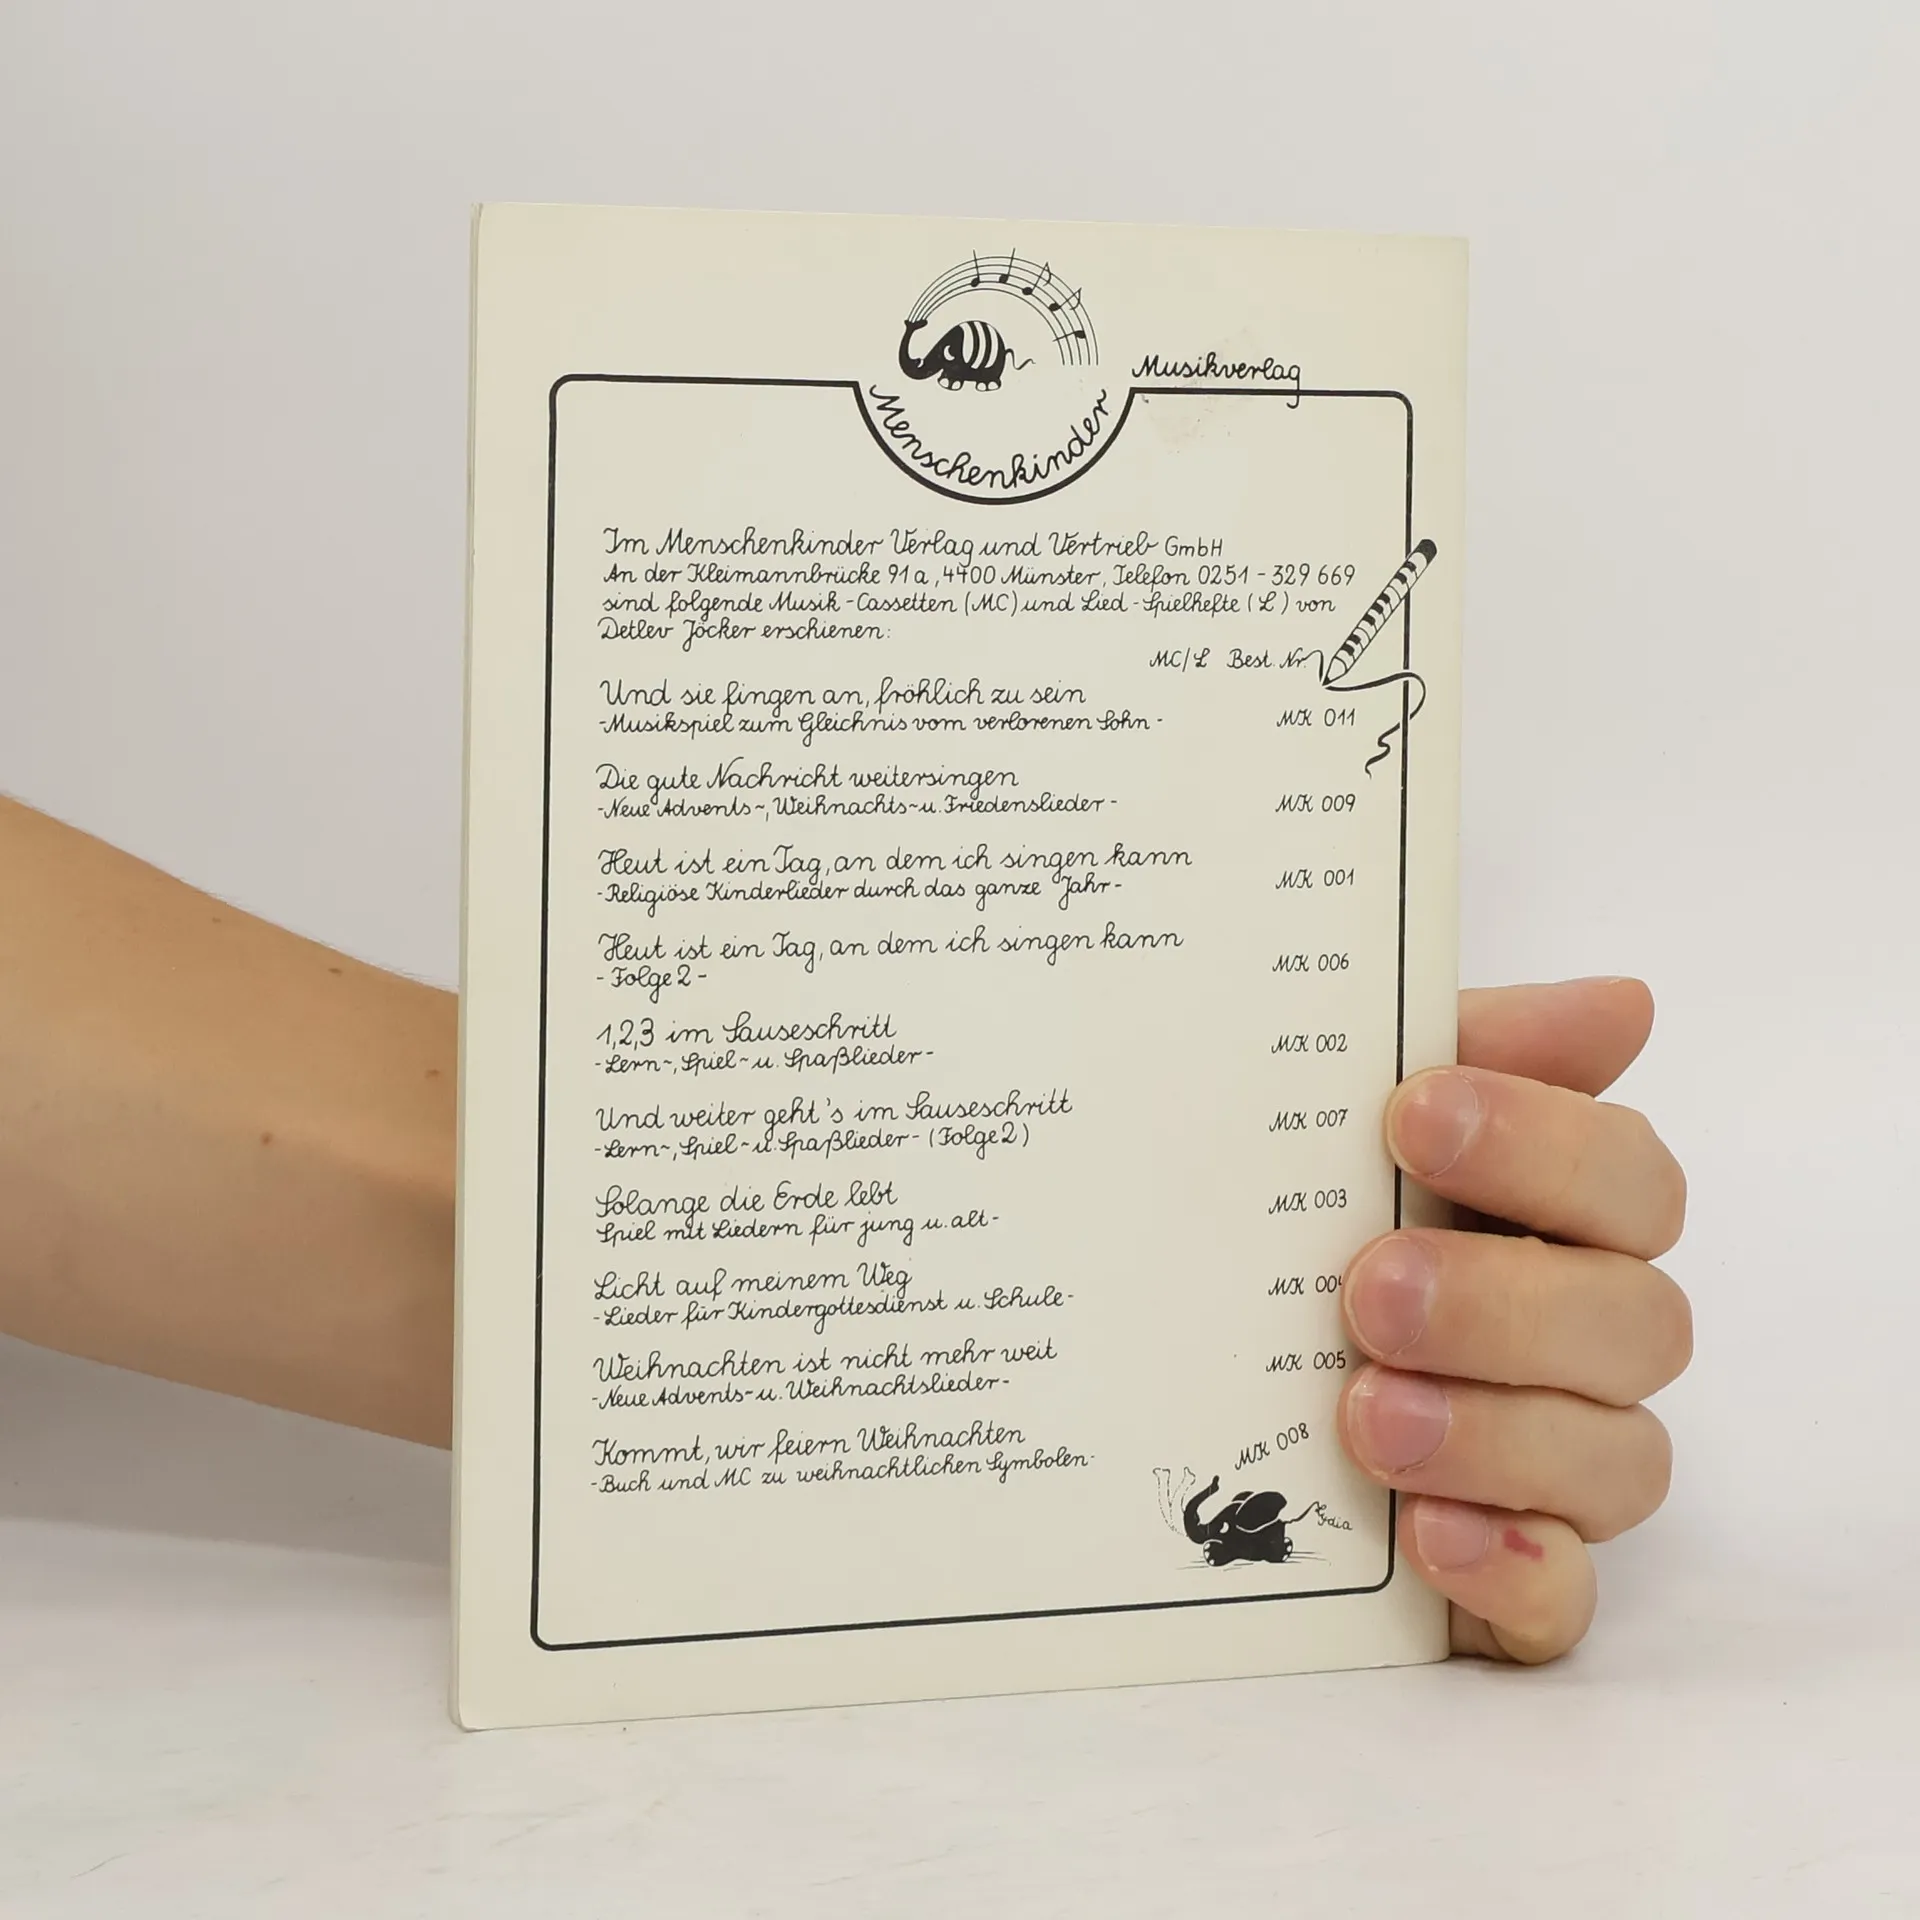 Musikverlag
Menschenkinder
Im Menschenkinder Verlag und Vertrieb GmbH
An der Kleimannbrücke 91a, 4400 Münster, Telefon 0251-329 669
sind folgende Musik-Cassetten (MC) und Lied-Spielhefte (L) von
Detlev Jöcker erschienen:
MC/L Best. Nr.
Und sie fingen an, fröhlich zu sein
-Musikspiel zum Gleichnis vom verlorenen Sohn- MK 011
Die gute Nachricht weitersingen
-Neue Advents-, Weihnachts- u. Friedenslieder- MK 009
Heut ist ein Tag, an dem ich singen kann
-Religiöse Kinderlieder durch das ganze Jahr- MK 001
Heut ist ein Tag, an dem ich singen kann
-Folge 2- MK 006
1,2,3 im Sauseschritt
-Lern-, Spiel- u. Spaßlieder- MK 002
Und weiter geht's im Sauseschritt
-Lern-, Spiel- u. Spaßlieder- (Folge 2) MK 007
Solange die Erde lebt
Spiel mit Liedern für jung u. alt- MK 003
Licht auf meinem Weg
-Lieder für Kindergottesdienst u. Schule- MK
Weihnachten ist nicht mehr weit
-Neue Advents- u. Weihnachtslieder- MK 005
Kommt, wir feiern Weihnachten
-Buch und MC zu weihnachtlichen Symbolen- MK 008
Lydia